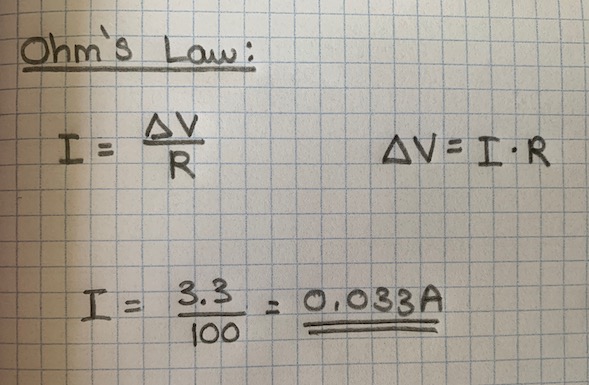 Ohm's Law:
I = ΔV/R
ΔV = I · R
I = 3.3/100 = 0.033A